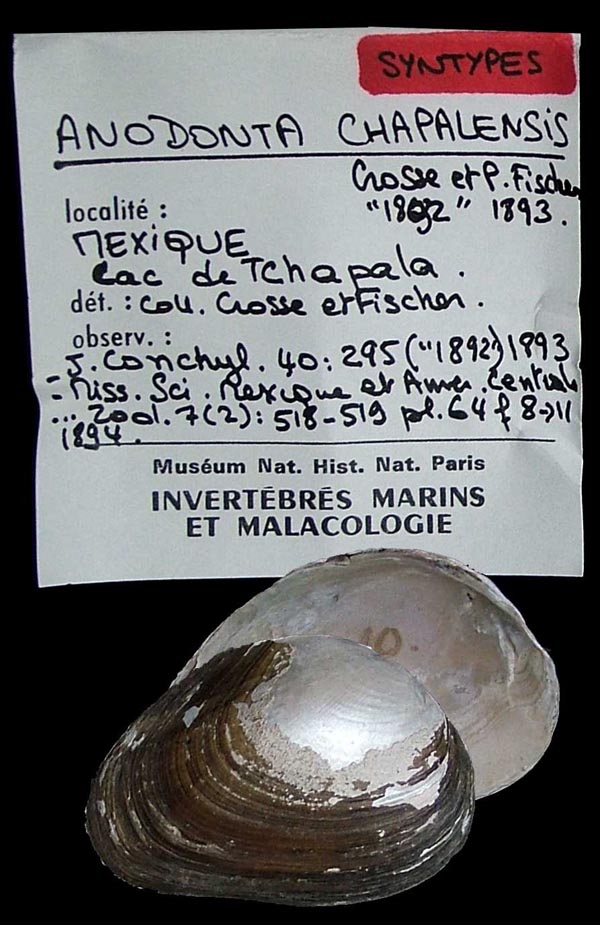 SYNTYPES
ANODONTA CHAPALENSIS
Crosse et P. Fischer
"1892" 1893.
localité :
MEXIQUE
Lac de Tchapala.
dét. : coll. Crosse et Fischer.
observ. :
J. Conchyl. 40: 295 ("1892") 1893
= Miss. Sci. Mexique et Amer. Centrale
... Zool. 7(2): 518-519 pl. 64 f 8→11
1894.
Muséum Nat. Hist. Nat. Paris
INVERTÉBRÉS MARINS
ET MALACOLOGIE
10.